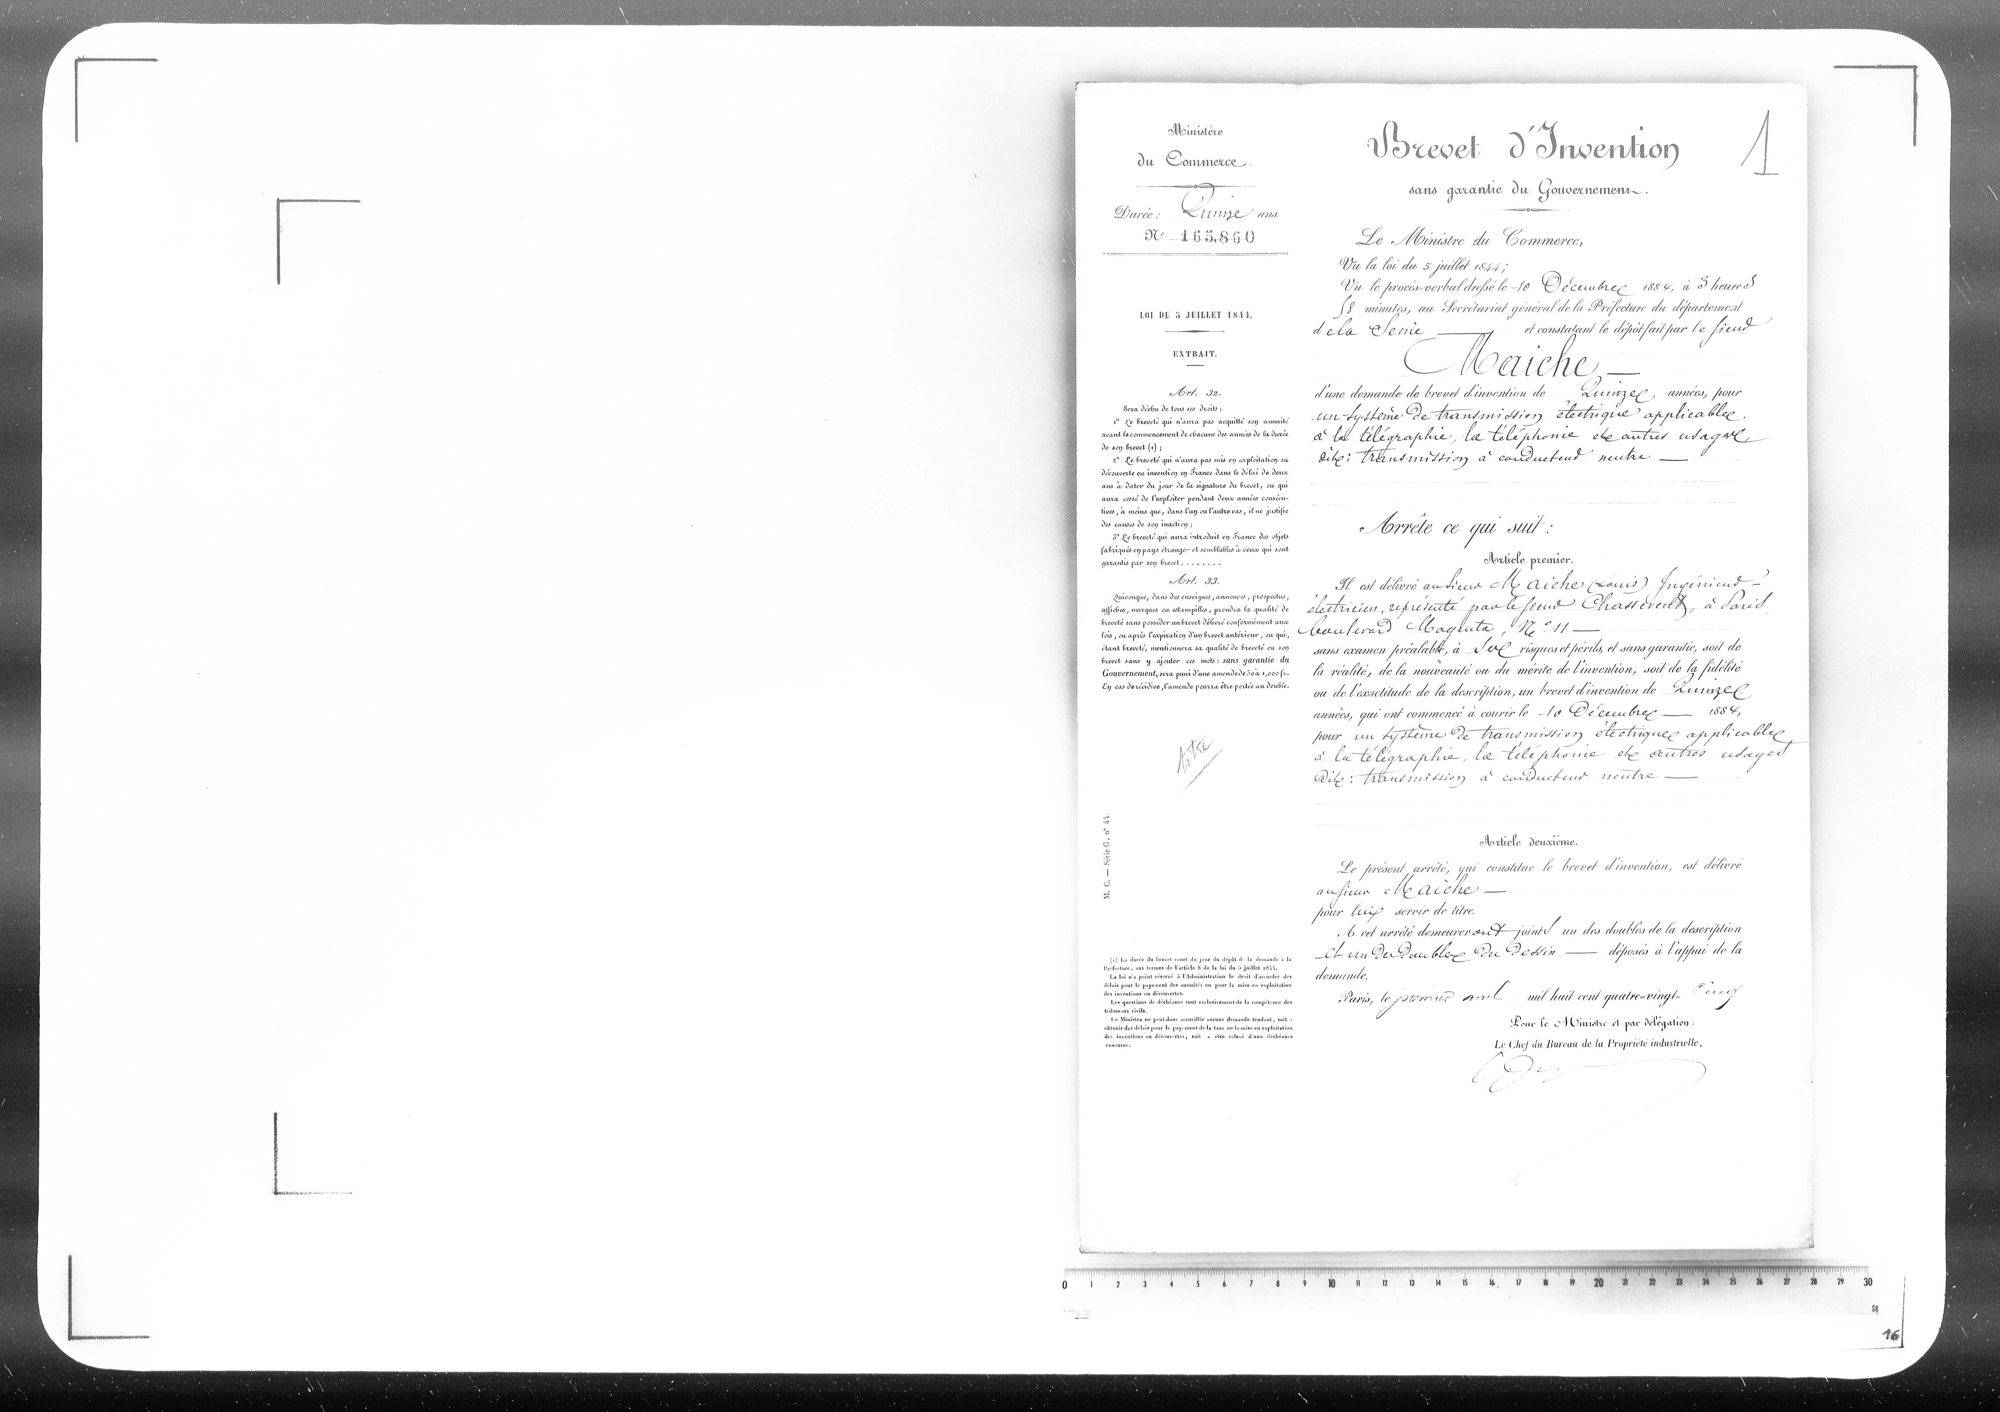 Ministère
du Commerce.
Durée : Quinze ans.
N° 165,860
LOI DU 5 JUILLET 1844.
EXTRAIT.
Art. 32.
Sera déchu de tous ses droits :
1° Le breveté qui n'aura pas acquitté son annuité
avant le commencement de chacune des années de la durée
de son brevet (1) ;
2° Le breveté qui n'aura pas mis en exploitation sa
découverte ou invention en France dans le délai de deux
ans à dater du jour de la signature du brevet, ou qui
aura cessé de l'exploiter pendant deux années consécu-
tives, à moins que, dans l'un ou l'autre cas, il ne justifie
des causes de son inaction ;
3° Le breveté qui aura introduit en France des objets
fabriqués en pays étranger et semblables à ceux qui sont
garantis par son brevet........
Art. 33.
Quiconque, dans des enseignes, annonces, prospectus,
affiches, marques ou estampilles, prendra la qualité de
breveté sans posséder un brevet délivré conformément aux
lois, ou après l'expiration d'un brevet antérieur, ou qui,
étant breveté, mentionnera sa qualité de breveté ou son
brevet sans y ajouter ces mots : sans garantie du
Gouvernement, sera puni d'une amende de 50 à 1,000 fr.
En cas de récidive, l'amende pourra être portée au double.
titre
M. C. — Série G, n° 44.
(1) La durée du brevet court du jour du dépôt de la demande à la
Préfecture, aux termes de l'article 8 de la loi du 5 juillet 1844.
La loi n'a point réservé à l'Administration le droit d'accorder des
délais pour le payement des annuités ou pour la mise en exploitation
des inventions ou découvertes.
Les questions de déchéance sont exclusivement de la compétence des
tribunaux civils.
Le Ministre ne peut donc accueillir aucune demande tendant, soit à
obtenir des délais pour le payement de la taxe ou la mise en exploitation
des inventions ou découvertes, soit à être relevé d'une déchéance
encourue.
1
Brevet d'Invention
sans garantie du Gouvernement.
Le Ministre du Commerce,
Vu la loi du 5 juillet 1844 ;
Vu le procès-verbal dressé le 10 Décembre 1884, à 3 heures
58 minutes, au Secrétariat général de la Préfecture du département
de la Seine — et constatant le dépôt fait par le sieur
Maiche —
d'une demande de brevet d'invention de Quinze années, pour
un système de transmission électrique applicable
à la télégraphie, la téléphonie et autres usages,
dite : transmission à conducteur neutre —
Arrête ce qui suit :
Article premier.
Il est délivré au sieur Maiche (Louis) Ingénieur-
électricien, représenté par le sieur Chassevent, à Paris,
boulevard Magenta, N° 11 —
sans examen préalable, à ses risques et périls, et sans garantie, soit de
la réalité, de la nouveauté ou du mérite de l'invention, soit de la fidélité
ou de l'exactitude de la description, un brevet d'invention de Quinze
années, qui ont commencé à courir le 10 Décembre — 1884,
pour un système de transmission électrique applicable
à la télégraphie, la téléphonie et autres usages
dite : transmission à conducteur neutre —
Article deuxième.
Le présent arrêté, qui constitue le brevet d'invention, est délivré
au sieur Maiche —
pour lui servir de titre.
A cet arrêté demeureront joints un des doubles de la description
et un des doubles du dessin — déposés à l'appui de la
demande.
Paris, le premier avril mil huit cent quatre-vingt-cinq
Pour le Ministre et par délégation :
Le Chef du Bureau de la Propriété industrielle,
0 1 2 3 4 5 6 7 8 9 10 11 12 13 14 15 16 17 18 19 20 21 22 23 24 25 26 27 28 29 30
16